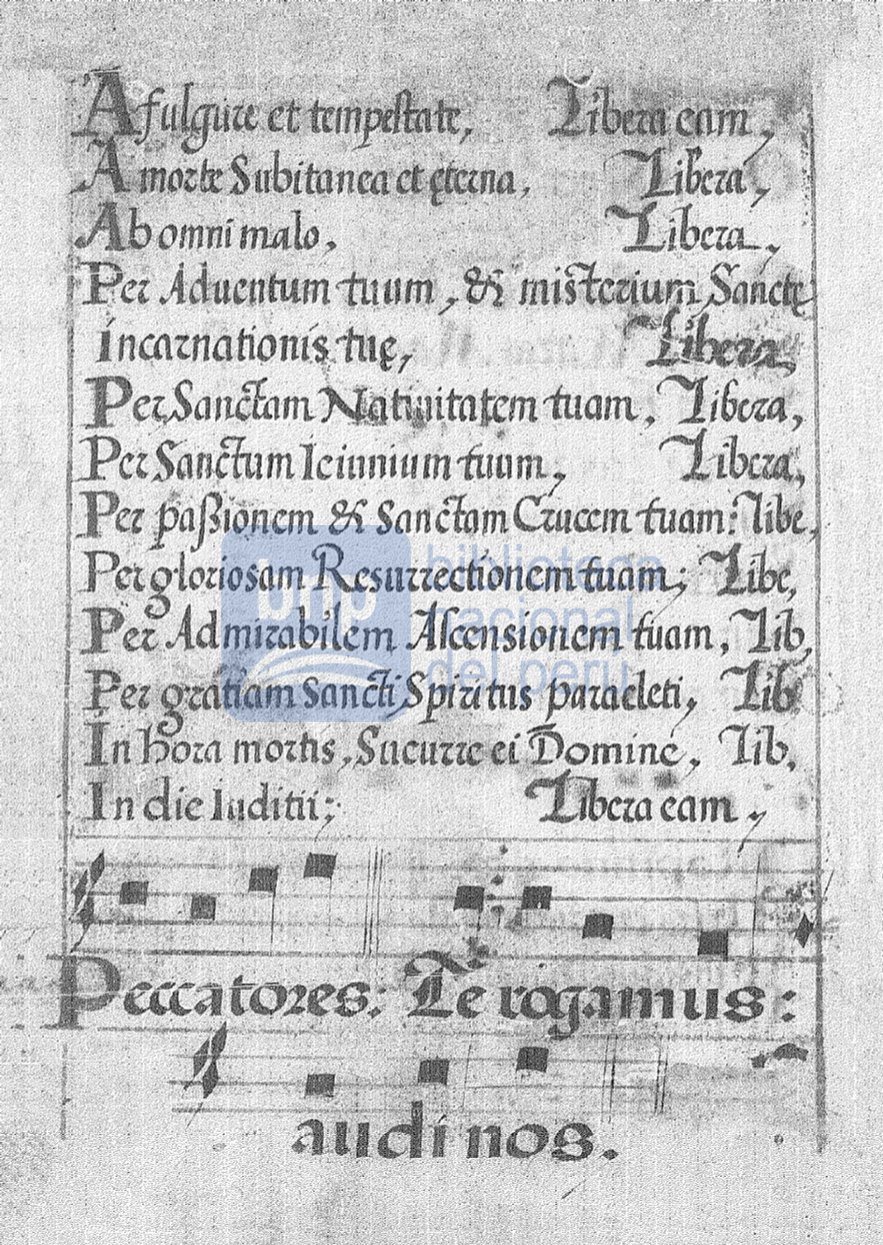 A fulgure et tempestate, Libera eam,
A morte Subitanea et ęterna, Libera,
Ab omni malo, Libera,
Per Aduentum tuum, & misterium Sanctę
incarnationis tuę, Libera,
Per Sanctam Natiuitatem tuam, Libera,
Per Sanctum Ieiunium tuum, Libera,
Per paßionem & Sanctam Crucem tuam: libe,
Per gloriosam Resurrectionem tuam; Libe,
Per Admirabilem Ascensionem tuam, Lib,
Per gratiam Sancti Spiritus paracleti, Lib
In hora mortis, Sucurre ei Domine, Lib,
In die Iuditii; Libera eam,
Peccatores: Te rogamus:
audi nos.
bnp biblioteca
nacional
del perú